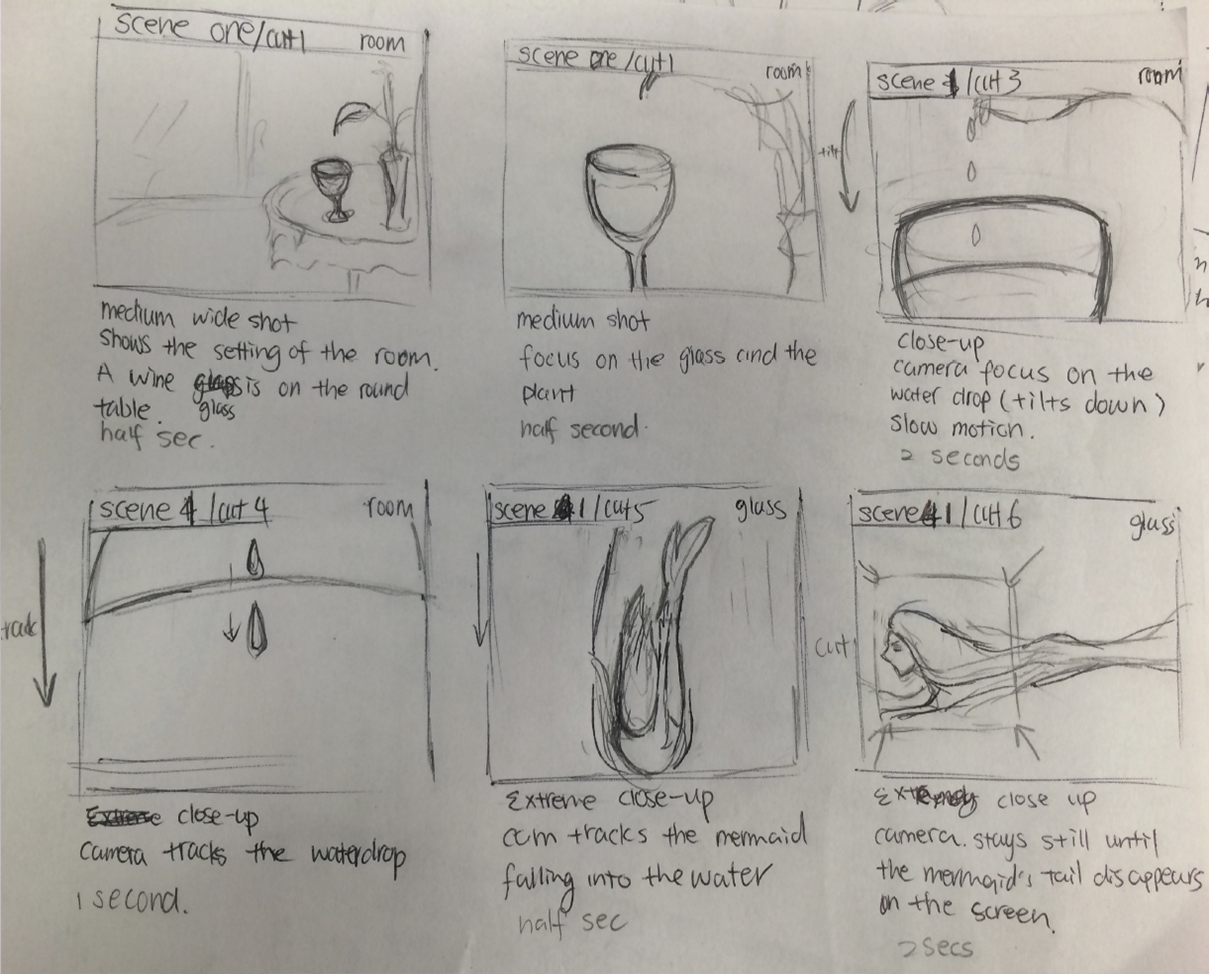 scene one/cut1 room
medium wide shot
shows the setting of the room.
A wine glass is on the round
table. glass
half sec.
scene one/cut1 room
medium shot
focus on the glass and the
plant
half second.
scene 1/cut 3 room
tilt
close-up
camera focus on the
water drop (tilts down)
slow motion.
2 seconds
scene 1/cut 4 room
track
Extreme close-up
camera tracks the waterdrop
1 second.
scene 1/cut5 glass
Extreme close-up
cam tracks the mermaid
falling into the water
half sec
scene 1/cut 6 glass
cut
close up
camera. stays still until
the mermaid's tail disappears
on the screen.
2secs